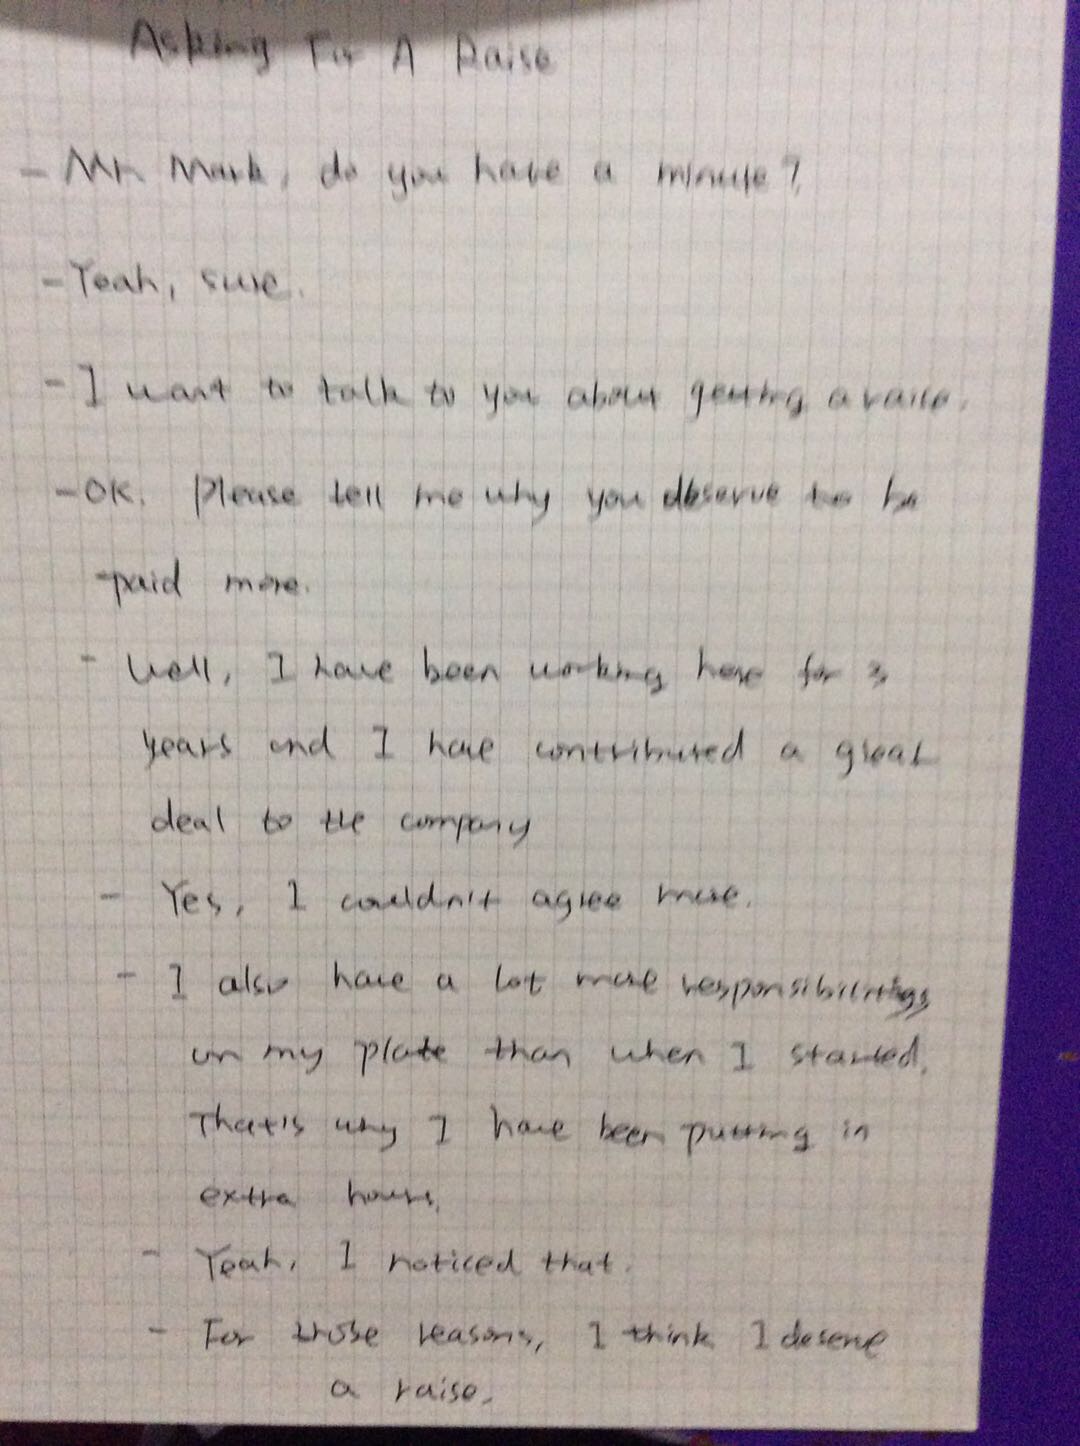 Asking For A Raise
- Mr. Mark, do you have a minute?
- Yeah, sure.
- I want to talk to you about getting a raise.
- OK. Please tell me why you deserve to be
paid more.
- Well, I have been working here for 3
years and I have contributed a great
deal to the company
- Yes, I couldn't agree more.
- I also have a lot more responsibilities
on my plate than when I started.
That's why I have been putting in
extra hours.
- Yeah, I noticed that.
- For those reasons, I think I deserve
a raise.